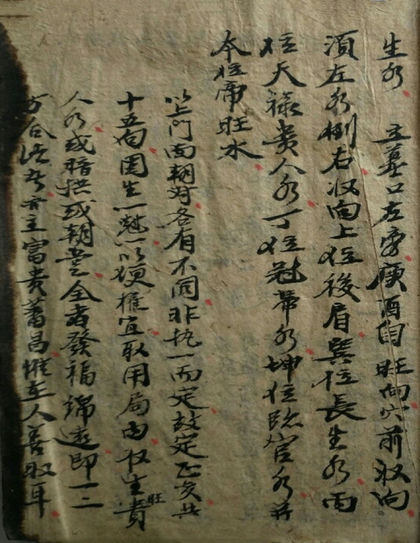 生水 立墓口左旁庚酉自旺向穴前收向
須左水倒右收向上位後眉巽位長生水丙
位天祿貴人水丁位冠帶水坤位臨官水并
本位帝旺水
以上門面朝對各有不同非执一而定故定正共
十五向因生一一以便權宜取用局内收生旺貴
人水或暗拱或朝堂全者發福綿遠即一二
方合法者亦主富貴蕃昌惟在人善取耳